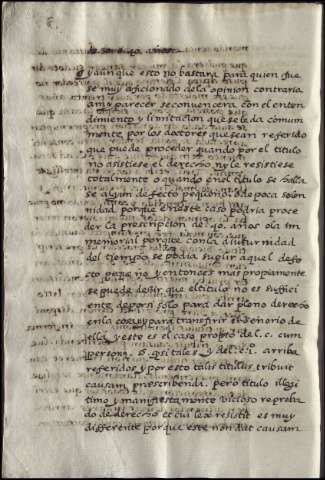 de los 40. años.
y aunque esto no bastara para quien fue
se muy aficionado dela opinion contraria
a mi parecer se convencera con el enten
dimiento y limitacion que se le da comun
mente por los doctores que sean referido
que puede proceder quando por el titulo
no asistiese el derecho ny le resistiese
totalmente o quando en el titulo se halla
se algun defecto pequeño o de poca solem
nidad porque en este caso podria proce
der la prescripcion de 40. años o la im
memorial porque con la diuturnidad
del tiempo se podia suplir aquel defe
cto pequeño y entonces mas propiamente
se puede dezir que el titulo no es suffici
ente de por si solo para dar pleno derecho
en la cosa y para transferir el señorio de
ella y este es el caso propio del. c. cum
persone. §. qsi tales y del. c. i. arriba
referidos y por esto talis titulus tribuit
causam praescribendi. pero titulo illegi
timo y manifiestamente vicioso reproba
do de derecho et cui lex resistit es muy
differente porque este non dat causam